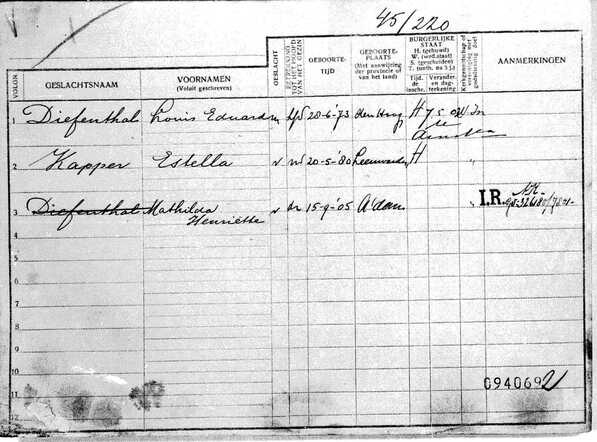 45/220
VOLGN. GESLACHTSNAAM VOORNAMEN (Voluit geschreven) GESLACHT BETREKKING TOT HET HOOFD VAN HET GEZIN GEBOORTE-TIJD GEBOORTE-PLAATS (Met aanwijzing der provincie of van het land) BURGERLIJKE STAAT H. (gehuwd) W. (wed.staat) S. (gescheiden) T. (onth. ea 3 j.) Tijd. de inschr. Verander. en dag-teekening Kerkgenootschap of AANMERKINGEN
1 Diefenthal Louis Eduard m hfd 28-6-'73 den Haag H 7.5.02 te
Amst.
2 Kapper Estella v 20-5-'80 Leeuwarden H "
3 Diefenthal Mathilda v dr 15-9-'05 A'dam " I.R. N.K.
Henriëtte
4
5
6
7
8
9
10
11 094069
12